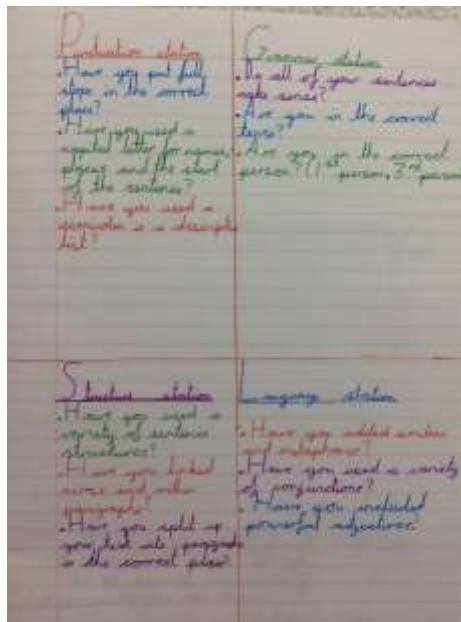 Punctuation station
• Have you put full
stops in the correct
place?
• Have you used a
capital letter for names,
places and the start
of the sentence?
• Have you used a
semicolon in a descriptive
list?
Grammar station
• Do all of your sentences
make sense?
• Are you in the correct
tense?
• Are you in the correct
person? (1st person, 3rd person
Structure station
• Have you used a
variety of sentence
structures?
• Have you linked
across and within
paragraphs?
• Have you split up
your text into paragraphs
in the correct place?
Language station
• Have you added similes
and metaphores?
• Have you used a variety
of conjunctions?
• Have you included
powerful adjectives?